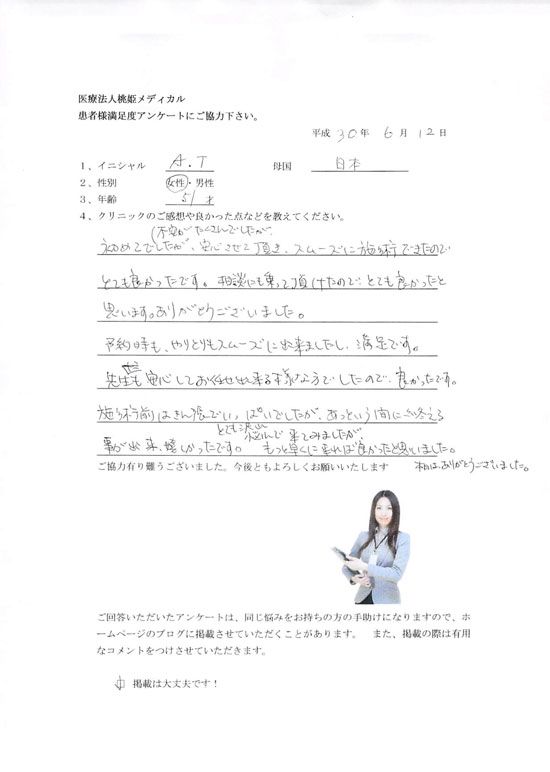 医療法人桃姫メディカル
患者様満足度アンケートにご協力下さい。
平成 30 年 6 月 12 日
1、イニシャル A.T 母国 日本
2、性別 女性・男性
3、年齢 51 才
4、クリニックのご感想や良かった点などを教えてください。
(不安がたくさんでしたが、
初めてでしたが、安心させて頂き、スムーズに施術できたので
とても良かったです。相談にも乗って頂けたので、とても良かったと
思います。ありがとうございました。
予約時も、やりとりもスムーズに出来ましたし、満足です。
先生も安心してお任せ出来る様な方でしたので、良かったです。
施術前はきん張でいっぱいでしたが、あっという間に終える
とても沢山悩んで来てみましたが、
事が出来、嬉しかったです。 もっと早くに来れば良かったと思いました。
ご協力有り難うございました。今後ともよろしくお願いいたします
本日は、ありがとうございました。
ご回答いただいたアンケートは、同じ悩みをお持ちの方の手助けになりますので、ホ
ームページのブログに掲載させていただくことがあります。 また、掲載の際は有用
なコメントをつけさせていただきます。
掲載は大丈夫です！